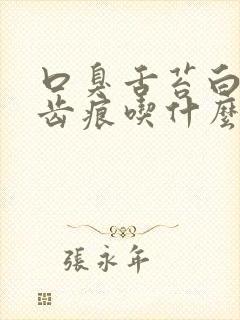 口臭舌苔白
齿痕喫什麽
張永年